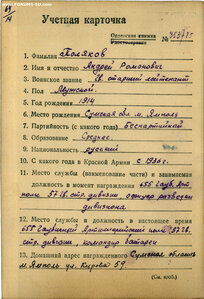 Forums-su.com
69
Учетная карточка
Орденская книжка
1. Фамилия Поляков
2. Имя и отчество Андрей Романович
3. Воинское звание гв. старший лейтенант
4. Пол Мужской
5. Год рождения 1914
6. Место рождения Сумская обл. м. Ямполь
7. Партийность (с какого года) беспартийный
8. Образование Среднее
9. Национальность русский
10. С какого года в Красной Армии с 1936 г.
11. Место службы (наименование части) и занимаемая
должность в момент награждения 655 Гауб. Арт
полк
дивизии, офицер разведки
дивизиона
12. Место службы и должность в настоящее время
655 Гаубичный Артиллерийский полк
стр. дивизии, командир батареи
13. Домашний адрес награжденного Сумская область
м. Ямполь ул. Кирова 59
(См. н/об.)